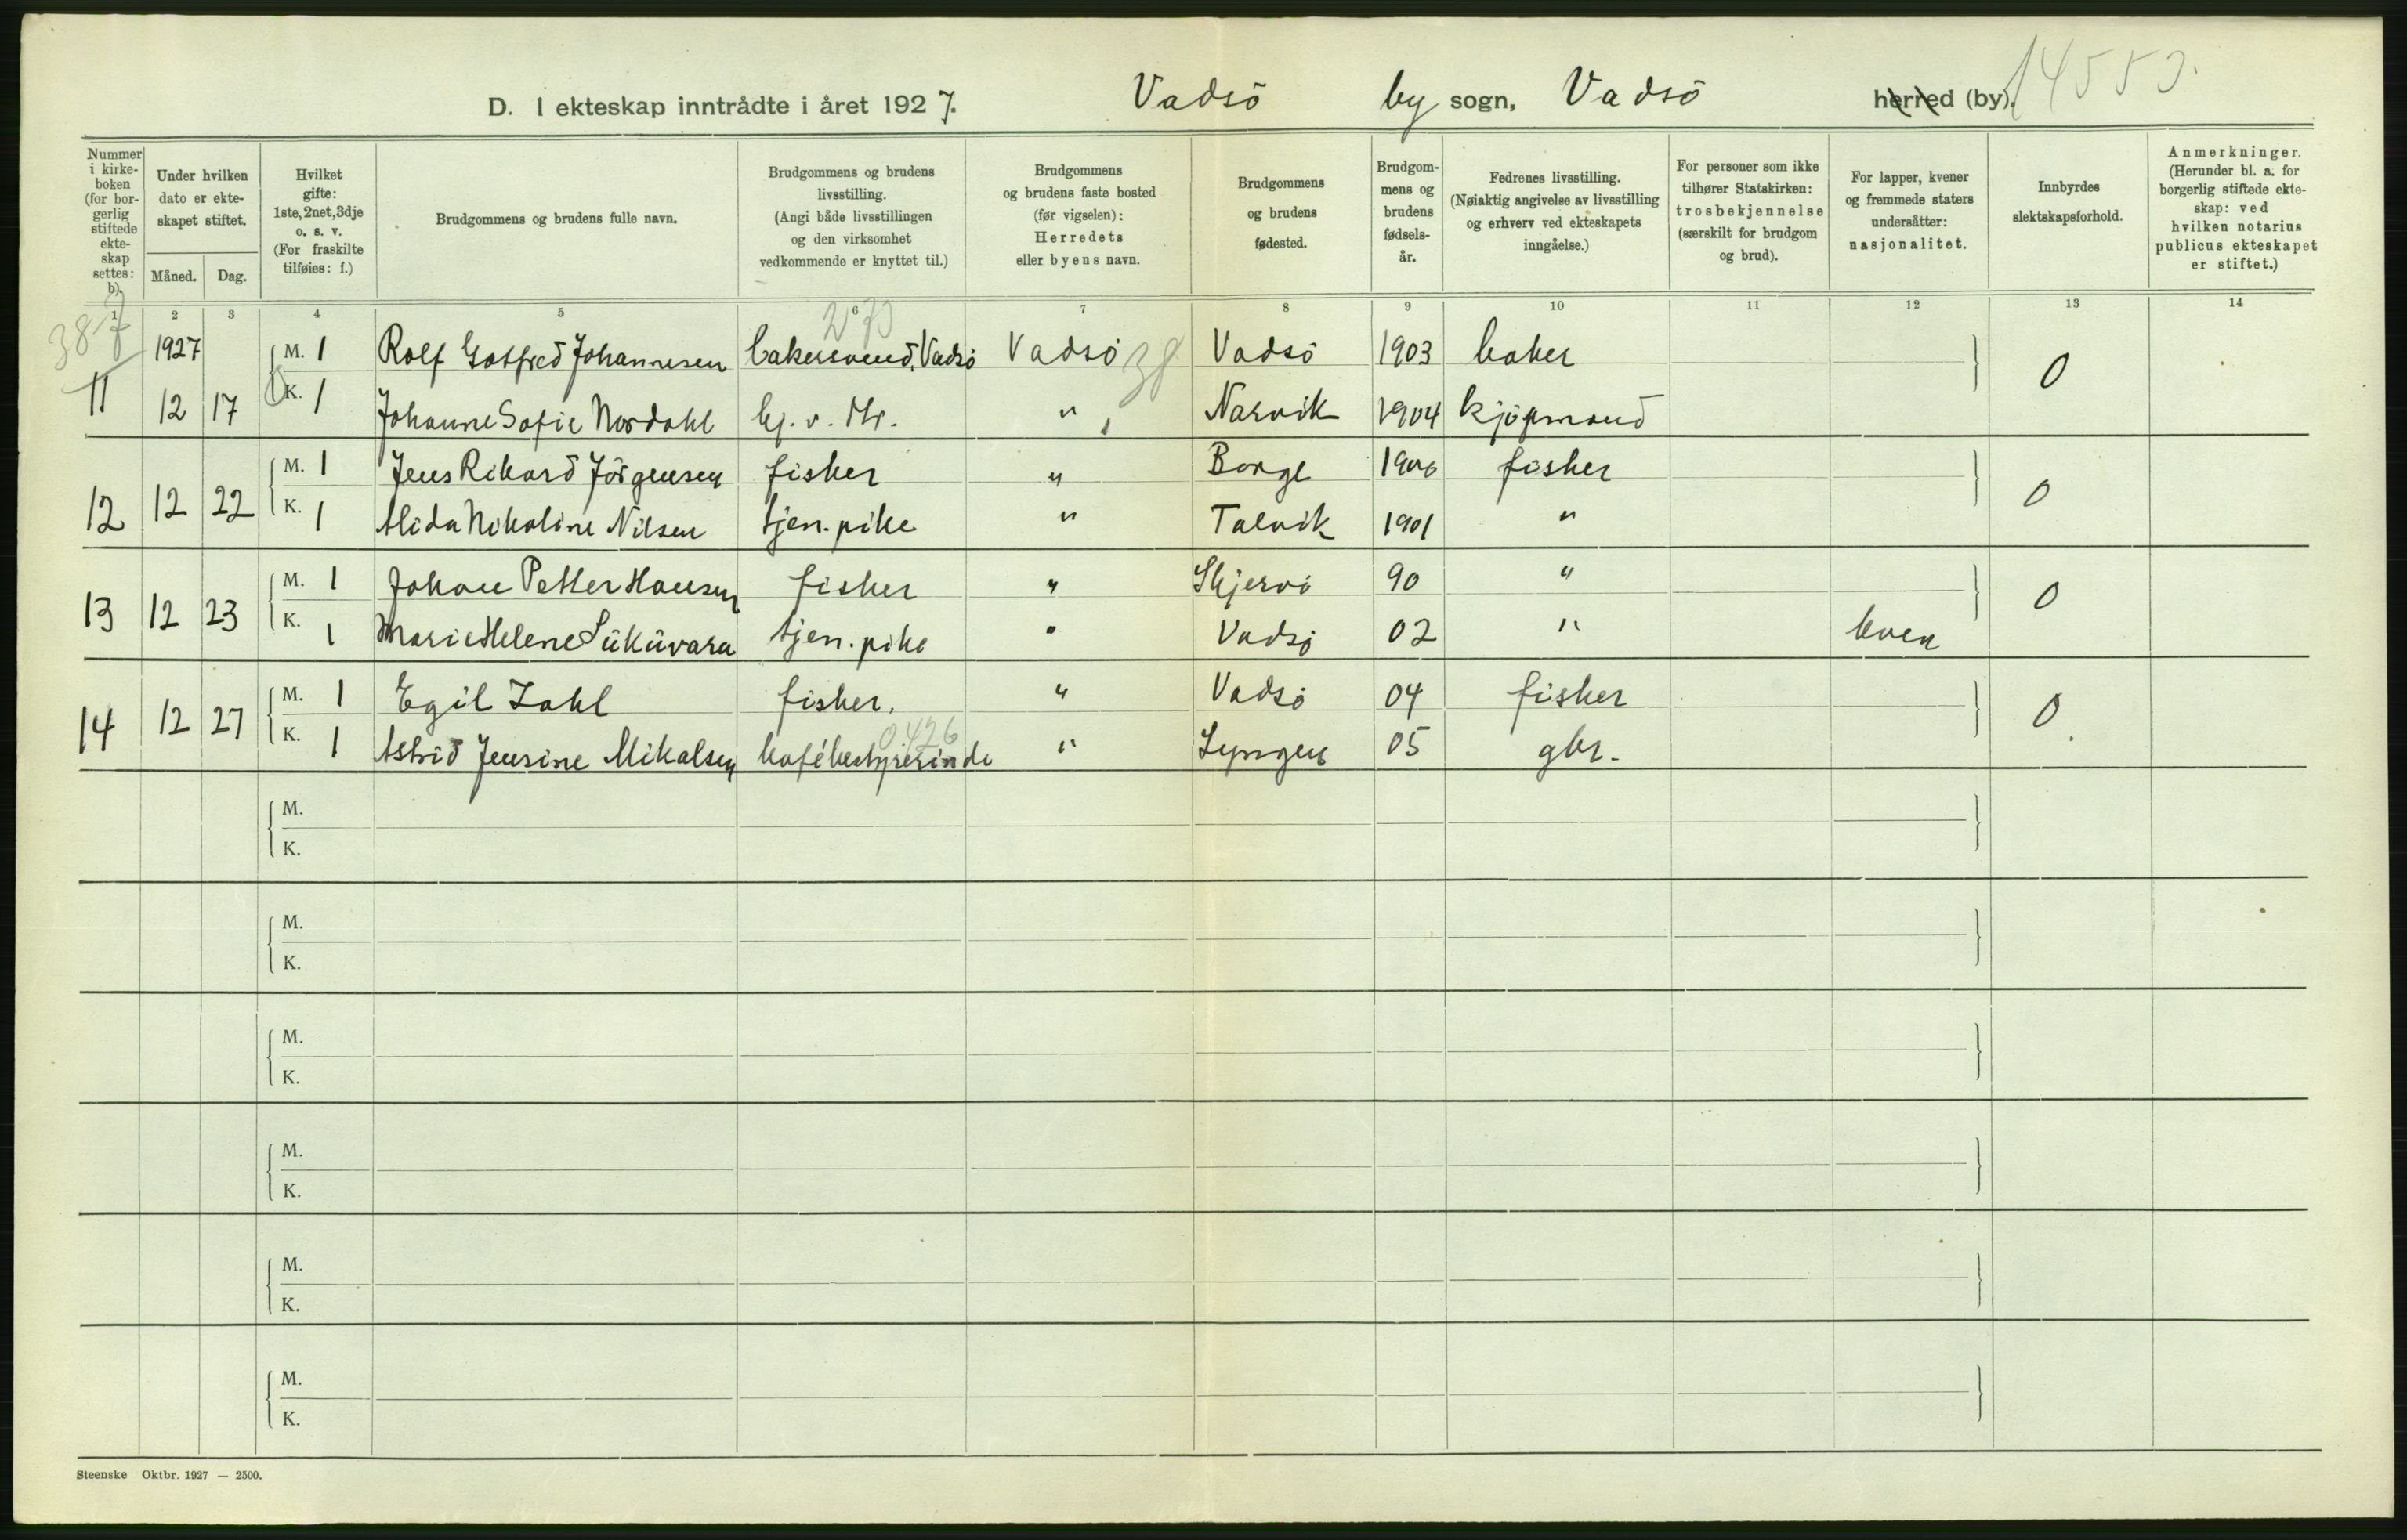 D. I ekteskap inntrådte i året 1927. Vadsö by sogn, Vadsö herred (by). 14553.
Nummer i kirkeboken (for borgerlig stiftede ekteskap settes: b).
Under hvilken dato er ekteskapet stiftet.
Måned. Dag.
Hvilket gifte: 1ste, 2net, 3dje o. s. v. (For fraskilte tilføies: f.)
Brudgommens og brudens fulle navn.
Brudgommens og brudens livsstilling. (Angi både livsstillingen og den virksomhet vedkommende er knyttet til.)
Brudgommens og brudens faste bosted (før vigselen): Herredets eller byens navn.
Brudgommens og brudens fødested.
Brudgommens og brudens fødselsår.
Fedrenes livsstilling. (Nøiaktig angivelse av livsstilling og erhverv ved ekteskapets inngåelse.)
For personer som ikke tilhører Statskirken: trosbekjennelse (særskilt for brudgom og brud).
For lapper, kvener og fremmede staters undersåtter: nasjonalitet.
Innbyrdes slektskapsforhold.
Anmerkninger. (Herunder bl. a. for borgerlig stiftede ekteskap: ved hvilken notarius publicus ekteskapet er stiftet.)
1 2 3 4 5 6 7 8 9 10 11 12 13 14
387 270
1927 M. 1 Rolf Gotfred Johannesen bakersvend, Vadsö Vadsö 38 Vadsö 1903 baker 0
11 12 17 K. 1 Johanne Sofie Nordahl hj. v. Mr. " Narvik 1904 kjöpmand
M. 1 Jens Rikard Jörgensen fisker " Borge 1906 fisker 0
12 12 22 K. 1 Alida Nikoline Nilsen tjen. pike " Talvik 1901 "
M. 1 Johan Petter Hansen fisker " Skjervö 90 " 0
13 12 23 K. 1 Marie Helene Sükûvara tjen. pike " Vadsö 02 " kven
M. 1 Egil Zahl fisker. " Vadsö 04 fisker 0
0426
14 12 27 K. 1 Astrid Jensine Mikalsen kafébestyrerinde " Lyngen 05 gbr.
M.
K.
M.
K.
M.
K.
M.
K.
M.
K.
M.
K.
Steenske Oktbr. 1927 — 2500.